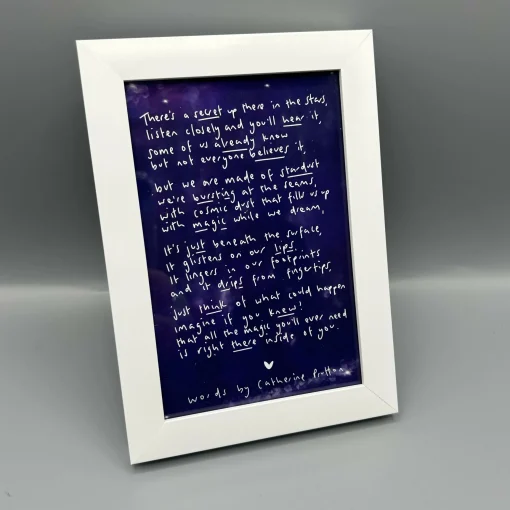 There's a secret up there in the stars,
listen closely and you'll hear it,
some of us already know
but not everyone believes it,
but we are made of stardust
we're bursting at the seams,
with cosmic dust that fills us up
with magic while we dream,
It's just beneath the surface,
It glistens on our lips.
It lingers in our footprints
and it drips from fingertips,
just think of what could happen
imagine if you knew!
that all the magic you'll ever need
is right there inside of you.
words by Catherine Prutton